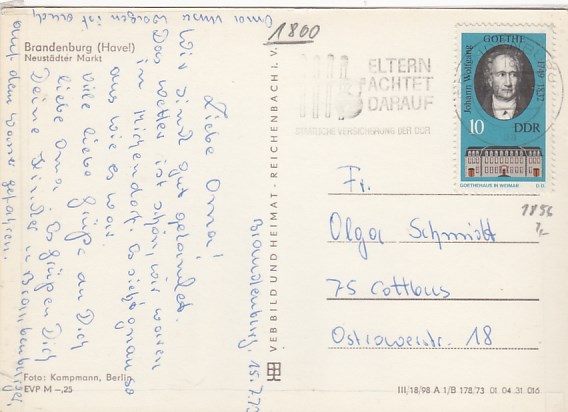 Brandenburg (Havel)
Neustädter Markt
Brandenburg, 15.7.
Liebe Oma!
Wir sind gut gelandet.
Das Wetter ist schön, wir waren
in Michendorf. Es sieht genau so
aus wie es war.
Viele liebe Grüße an Dich
liebe Oma. Es grüßen Dich
Deine Kinder u. Brandenburger
auf dem Wasser gefahren.
Oma unsere
Wangen ist auch
Foto: Kampmann, Berlin
EVP M -,25
VEB BILD UND HEIMAT - REICHENBACH i. V.
1800
ELTERN
ACHTET
DARAUF
STAATLICHE VERSICHERUNG DER DDR
Johann Wolfgang
GOETHE
1749-1832
10 DDR
GOETHEHAUS IN WEIMAR
1856
Fr.
Olga Schmidt
75 Cottbus
Ostrowerstr. 18
III/18/98 A 1/B 178/73 01 04 31 016